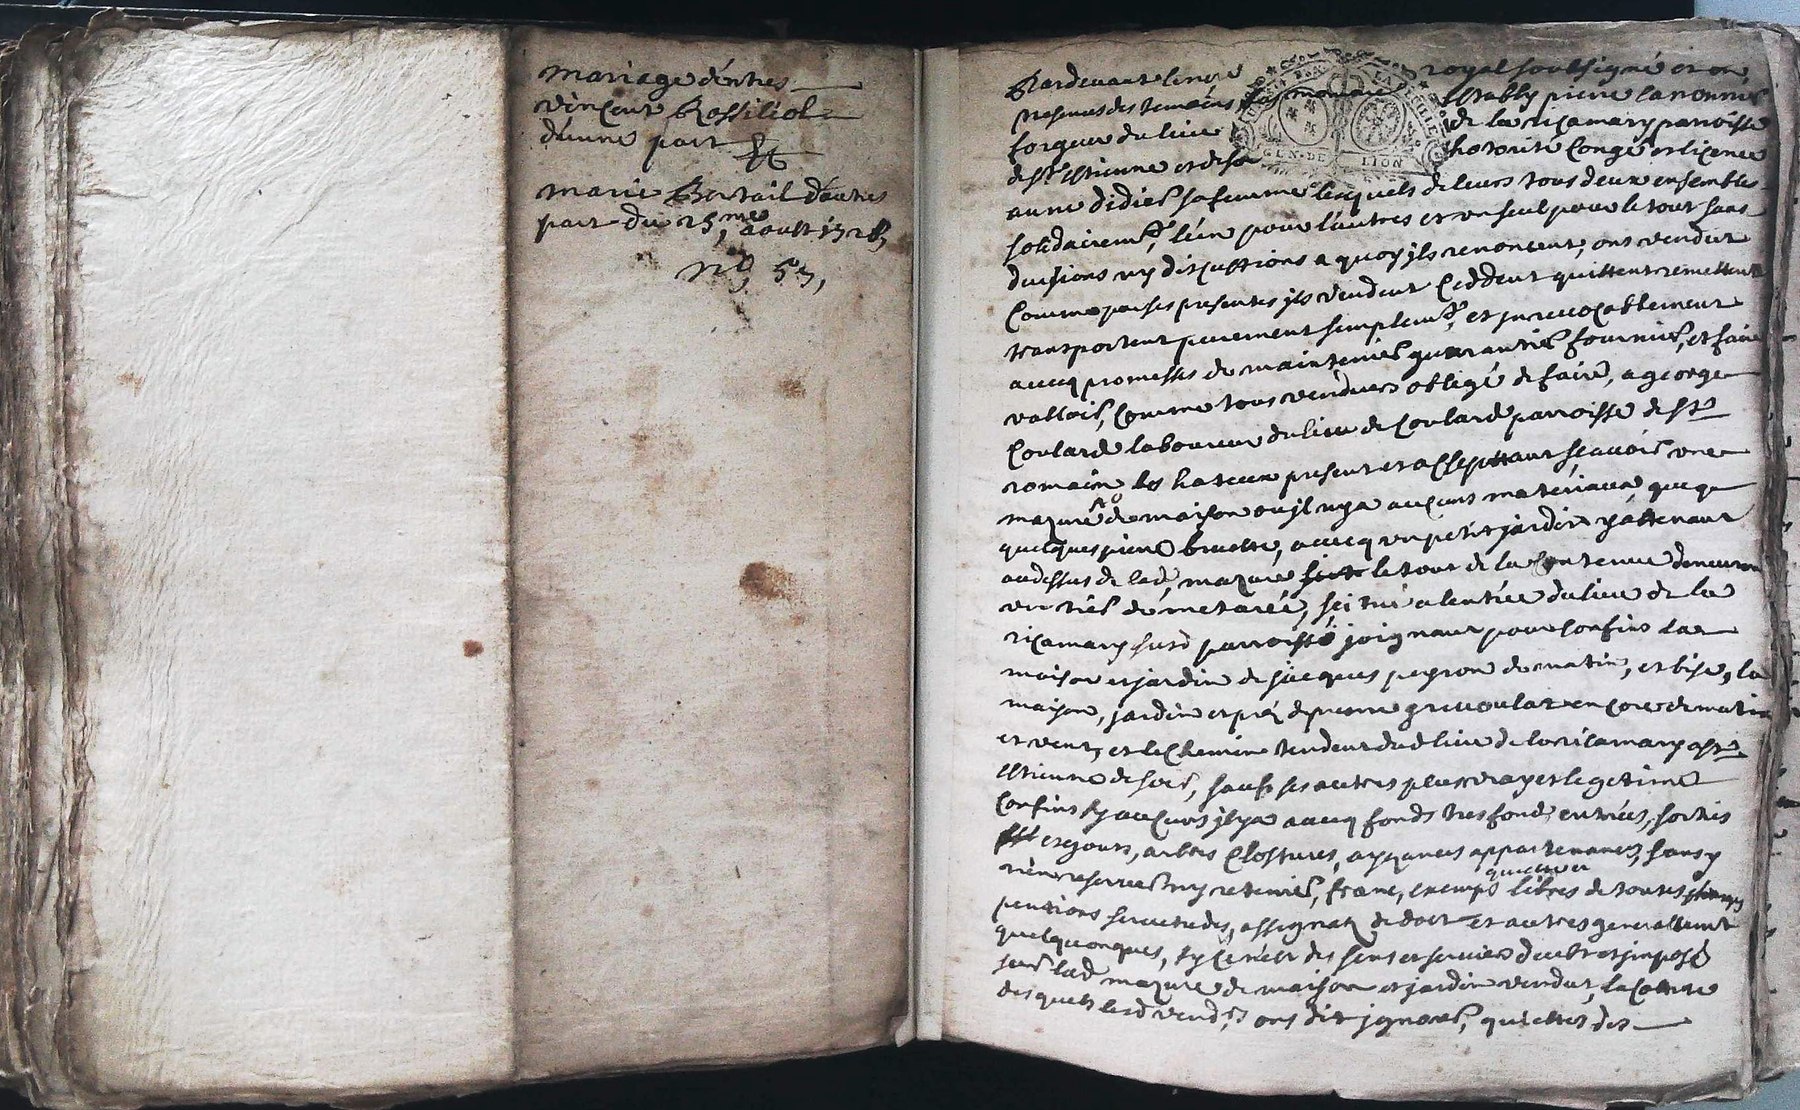 mariage d'entres
vincent Rossiliol
d'une part Et
marie Bertail d'autres
part du 25,me aoust 1728,
No, 53,
Pardevant le no.re royal soubsigné et en
presences des temoins bas només Establis pierre
forgeur du lieu de la ricamary parroisse
de st Estienne et de sa hotorité Congé et licence
anne didier sa femme lesquels de leurs tous deux ensembles
solidairemt, l'un pour l'autres et un seul pour le tout sans
divisions ny discutions a quoy jls renoncent, ont vendut
Comme par ses presentes jls vendent Ceddent quittent remettent
transportent purement simplemt, et jrrevocablement
avecq promesses de maintenir guarantir fournir, et faire
valloir, Comme tous vendeurs obligé de faire, a george
Coulard laboureur du lieu de Coulard parroisse de st
romain les hateux present et acseptant scavoir une
mazure de maison ou jl nya aucuns materiaux que
quelques pierre brutte, avecq un petit jardin y attenant
au dessus de lad, mazure le tout de la Contenue denviron
un tier de metarée, scitué a lentrée du lieu de la
ricamary susd parroisse joignant pour Confins la
maison et jardin de jacques peyron de matin, et bise, la
maison, jardin et pré de pierre grivoulat encore de matin
et vent, et le Chemin tendent dud lieu de la ricamary a st
Estienne de soir, sauf ses autres plus vray et legetime
Confins sy aucuns jl y a avecq fonds tres fond, entrées, sorties
esgouts, arbres Clostures, ayzances appartenances, sans y
rien reserver ny retenir, franc, exemps libres de toutes
pentions servitudes, assignatz de dot et autres generallemt
quelquonques, sy Ce nest des sens et servis deubt et jmposé
sur lad mazure de maison et jardin vendut, la Cotitte
desquels lesd vendrs, ont dit jgnorer, quittes des